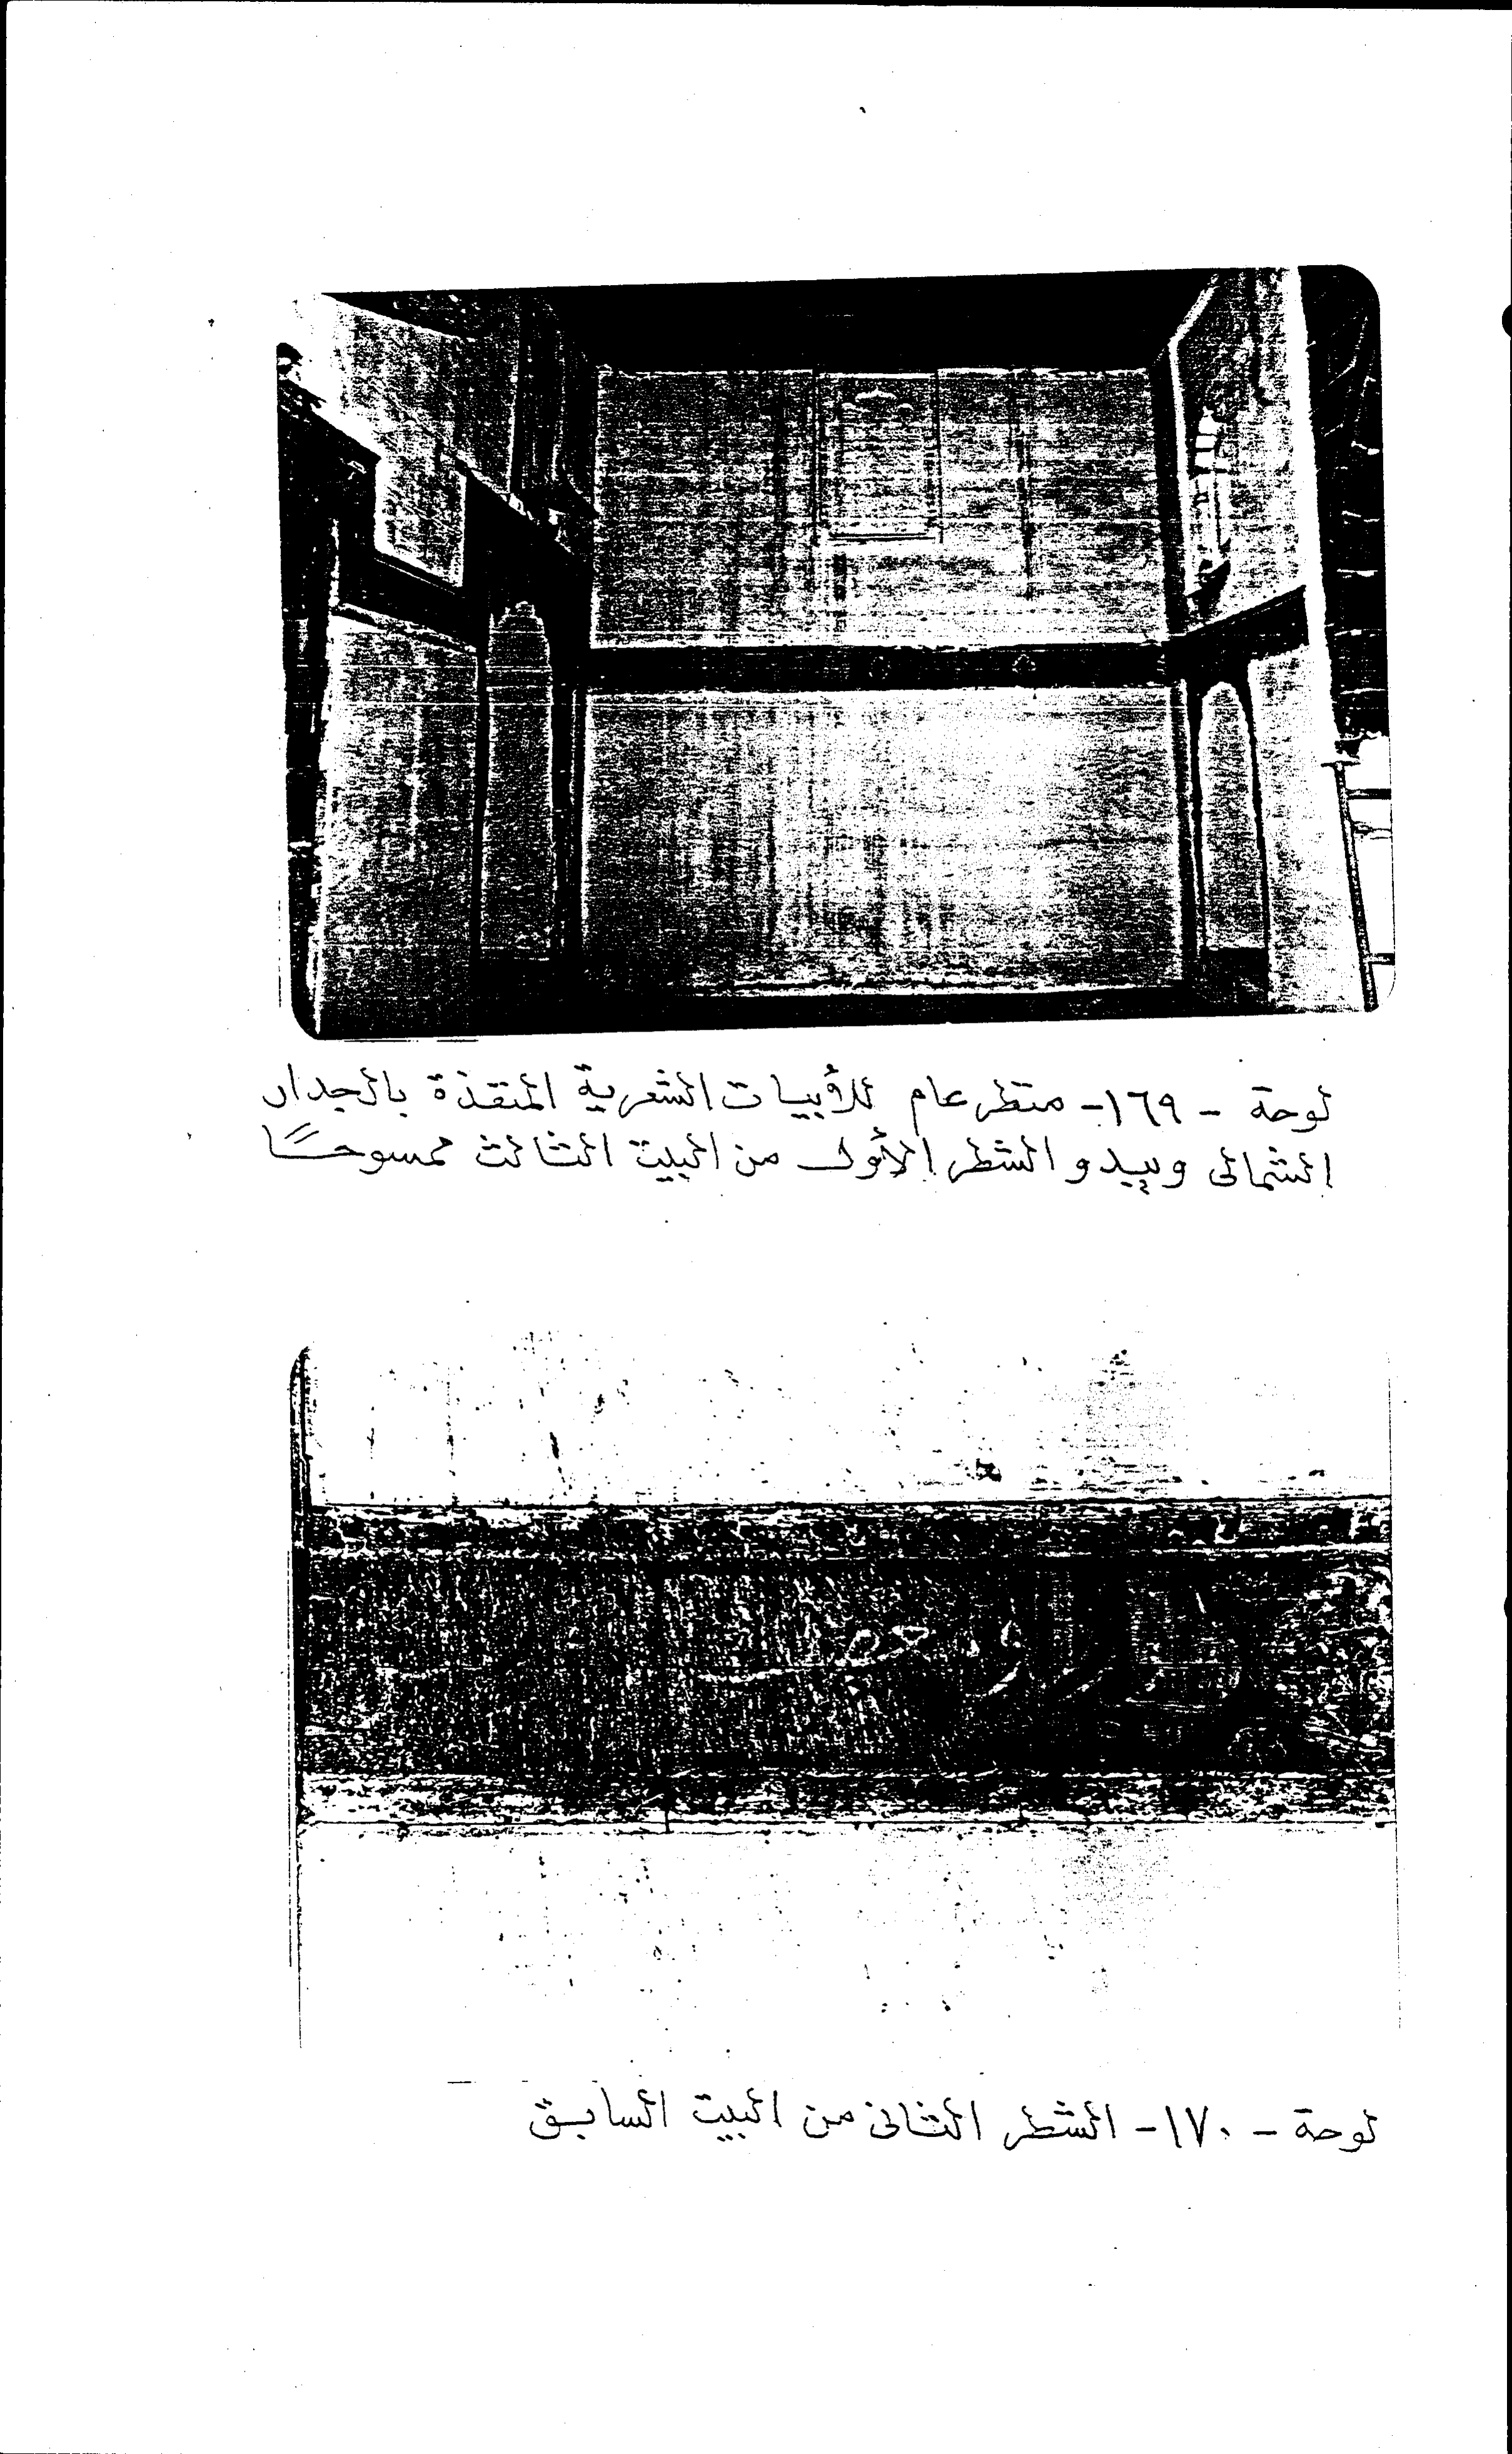 لوحة - ١٦٩- منظر عام للأبيات الشعرية المنفذة بالجدار
الشمالى ويبدو الشطر الأول من البيت الثالث ممسوحًا
لوحة - ١٧٠- الشطر الثانى من البيت السابق